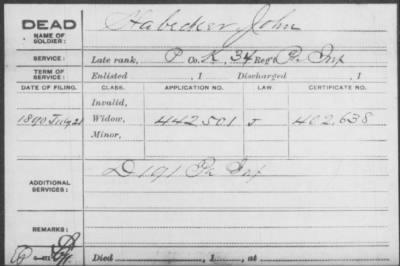 DEAD
NAME OF SOLDIER: Habecker, John
SERVICE: Late rank, P Co. K, 34 Reg't Pa Inf
TERM OF SERVICE: Enlisted , 1 Discharged , 1
DATE OF FILING. CLASS. APPLICATION NO. LAW. CERTIFICATE NO.
Invalid,
1890 July 21 Widow, 442.501 J 402.638
Minor,
ADDITIONAL SERVICES: D 191 Pa Inf
REMARKS:
Died , 1 , at